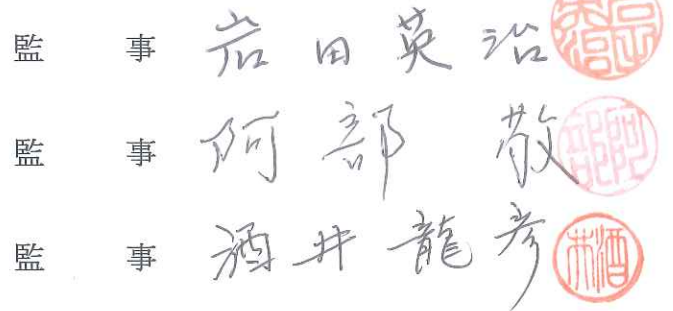 監事 岩田英治
監事 阿部敬
監事 酒井龍彦